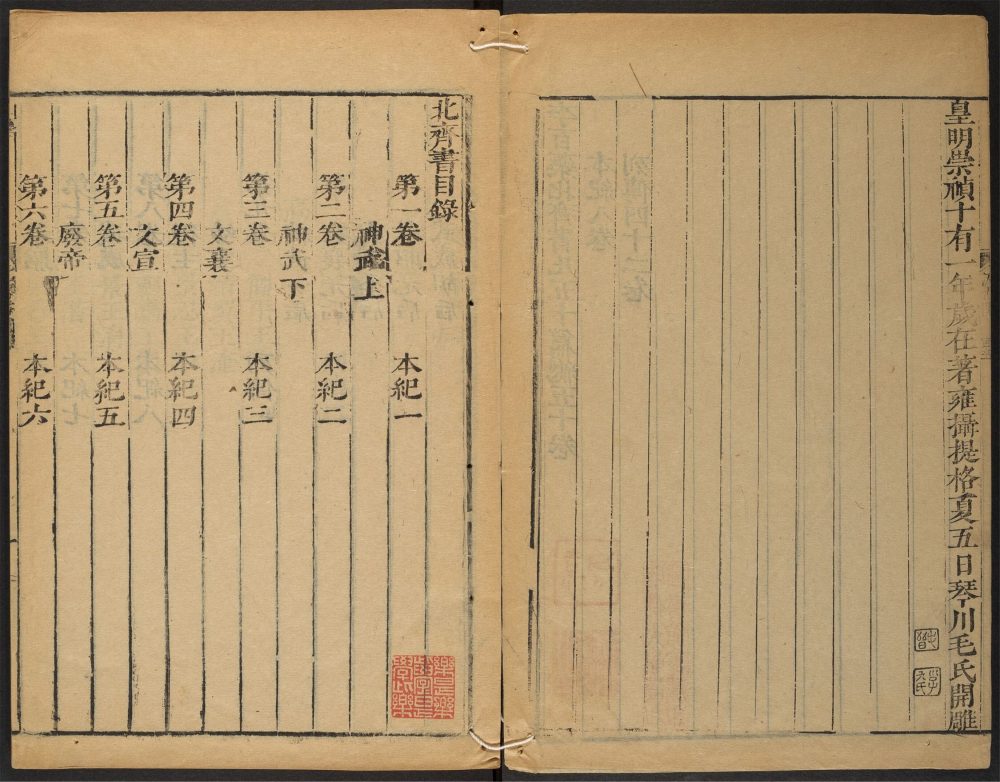 皇明崇禎十有一年歲在著雍攝提格夏五日琴川毛氏開雕
北齊書目錄
第一卷 本紀一
神武上
第二卷 本紀二
神武下
第三卷 本紀三
文襄
第四卷 本紀四
文宣
第五卷 本紀五
廢帝
第六卷 本紀六